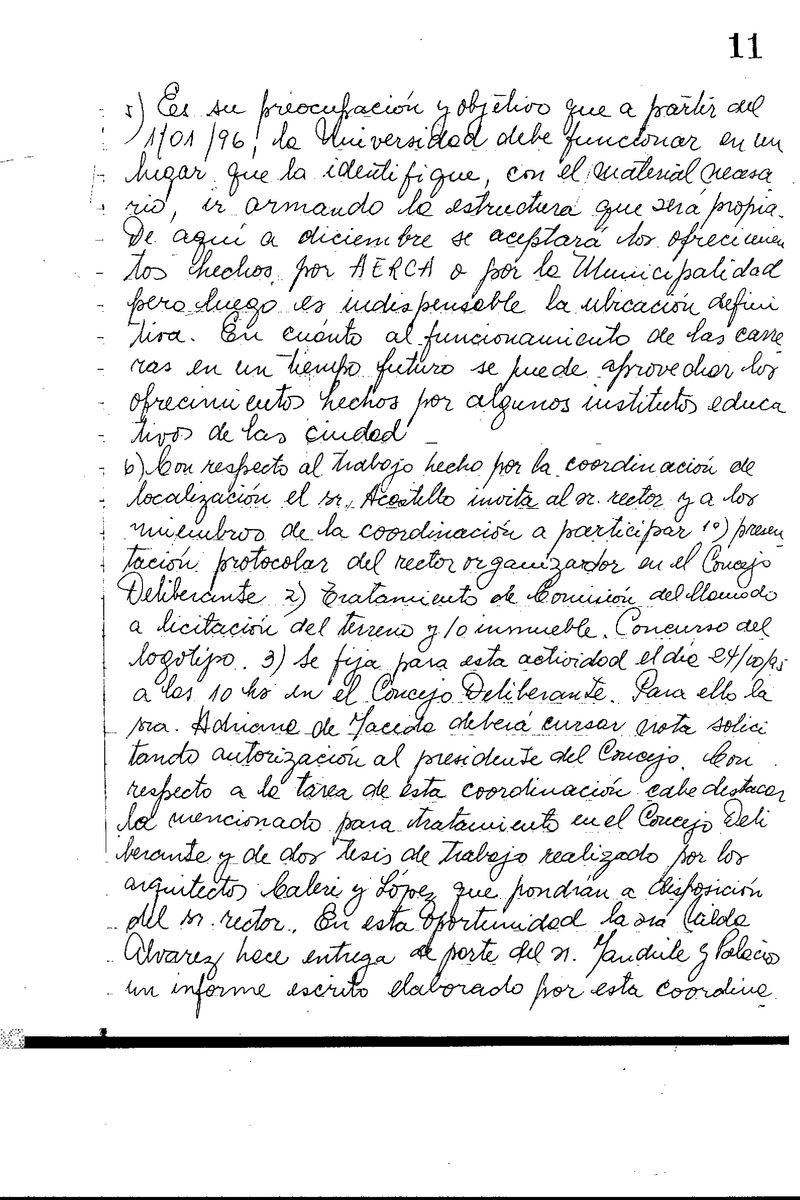 11
5) Es su preocupación y objetivo que a partir del
1/01/96, la Universidad debe funcionar en un
lugar que la identifique, con el material necesa
rio, ir armando la estructura que será propia.
De aquí a diciembre se aceptará los ofrecimien
tos hechos por AERCA o por la Municipalidad
pero luego es indispensable la ubicación defini
tiva. En cuánto al funcionamiento de las carre
ras en un tiempo futuro se puede aprovechar los
ofrecimientos hechos por algunos institutos educa
tivos de las ciudad
6) Con respecto al trabajo hecho por la coordinación de
localización el sr. Acastello invita al sr. rector y a los
miembros de la coordinación a participar 1º) presen
tación protocolar del rector organizador en el Concejo
Deliberante 2) Tratamiento de Comisión del llamado
a licitación del terreno y/o inmueble. Concurso del
logotipo. 3) Se fija para esta actividad el día 24/10/95
a las 10 hs en el Concejo Deliberante. Para ello la
sra. Adriana de Macedo deberá cursar nota solici
tando autorización al presidente del Concejo. Con
respecto a la tarea de ésta coordinación cabe destacar
lo mencionado para tratamiento en el Concejo Deli
berante y de dos tesis de trabajo realizado por los
arquitectos y López que pondrán a disposición
del sr. rector. En esta oportunidad la sra
Alvarez hace entrega de parte del sr. y Palacio
un informe escrito elaborado por esta coordina